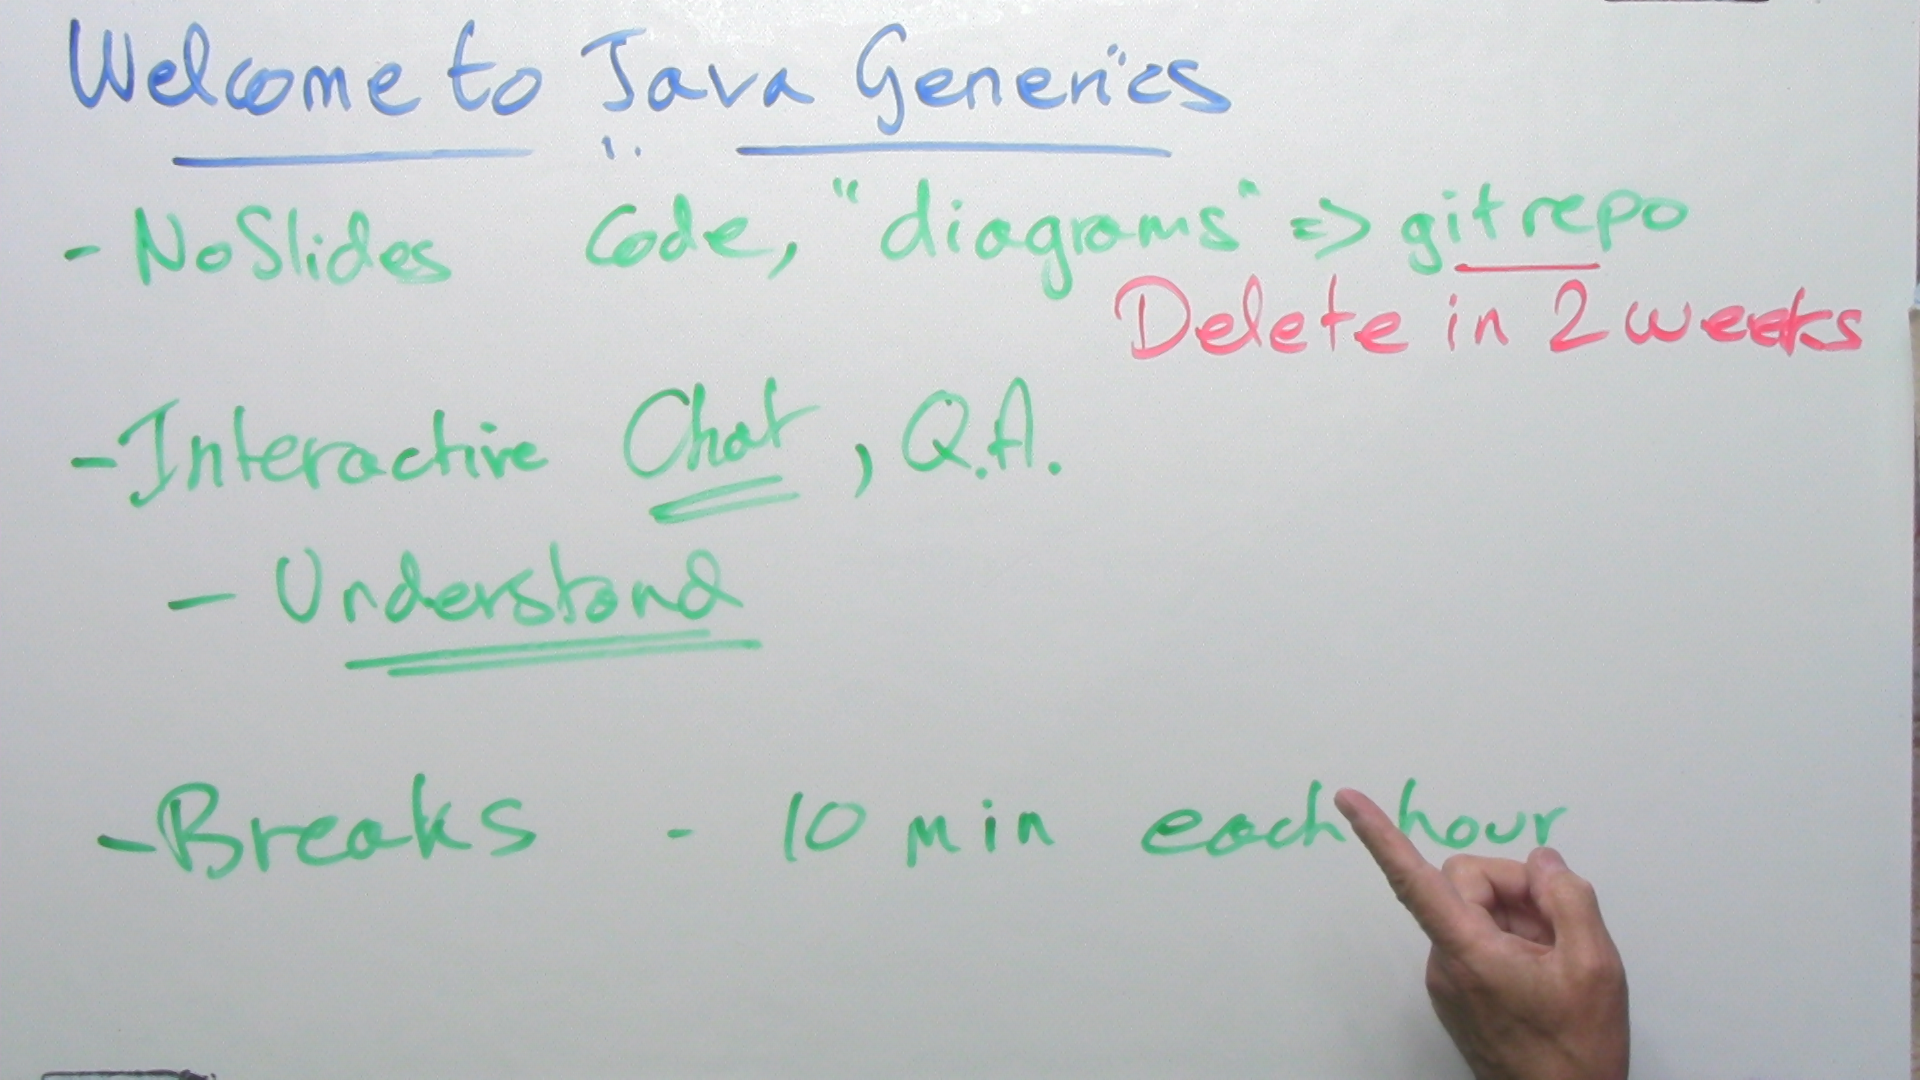 Welcome to Java Generics
- No Slides Code, "diagrams" => git repo
Delete in 2 weeks
- Interactive Chat, Q.A.
- Understand
- Breaks - 10 min each hour